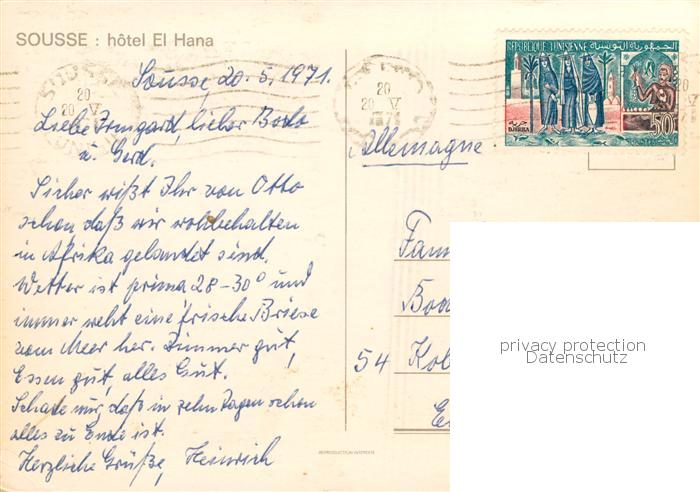 SOUSSE : hôtel El Hana
Sousse, 20.5.1971.
Liebe Irmgard, lieber Bodo
u. Gerd.
Sicher wißt Ihr von Otto
schon, daß wir wohlbehalten
in Afrika gelandet sind.
Wetter ist prima 28-30° und
immer weht eine frische Briese
vom Meer her. Zimmer gut,
Essen gut, alles Gut.
Schade nur, daß in zehn Tagen schon
alles zu Ende ist.
Herzliche Grüße, Heinrich
20
20 V
20
20 V
REPUBLIQUE TUNISIENNE الجمهورية التونسية
جربة
DJERBA
50
Allemagne
Fam
Bod
54 Kob
privacy protection
Datenschutz
REPRODUCTION INTERDITE